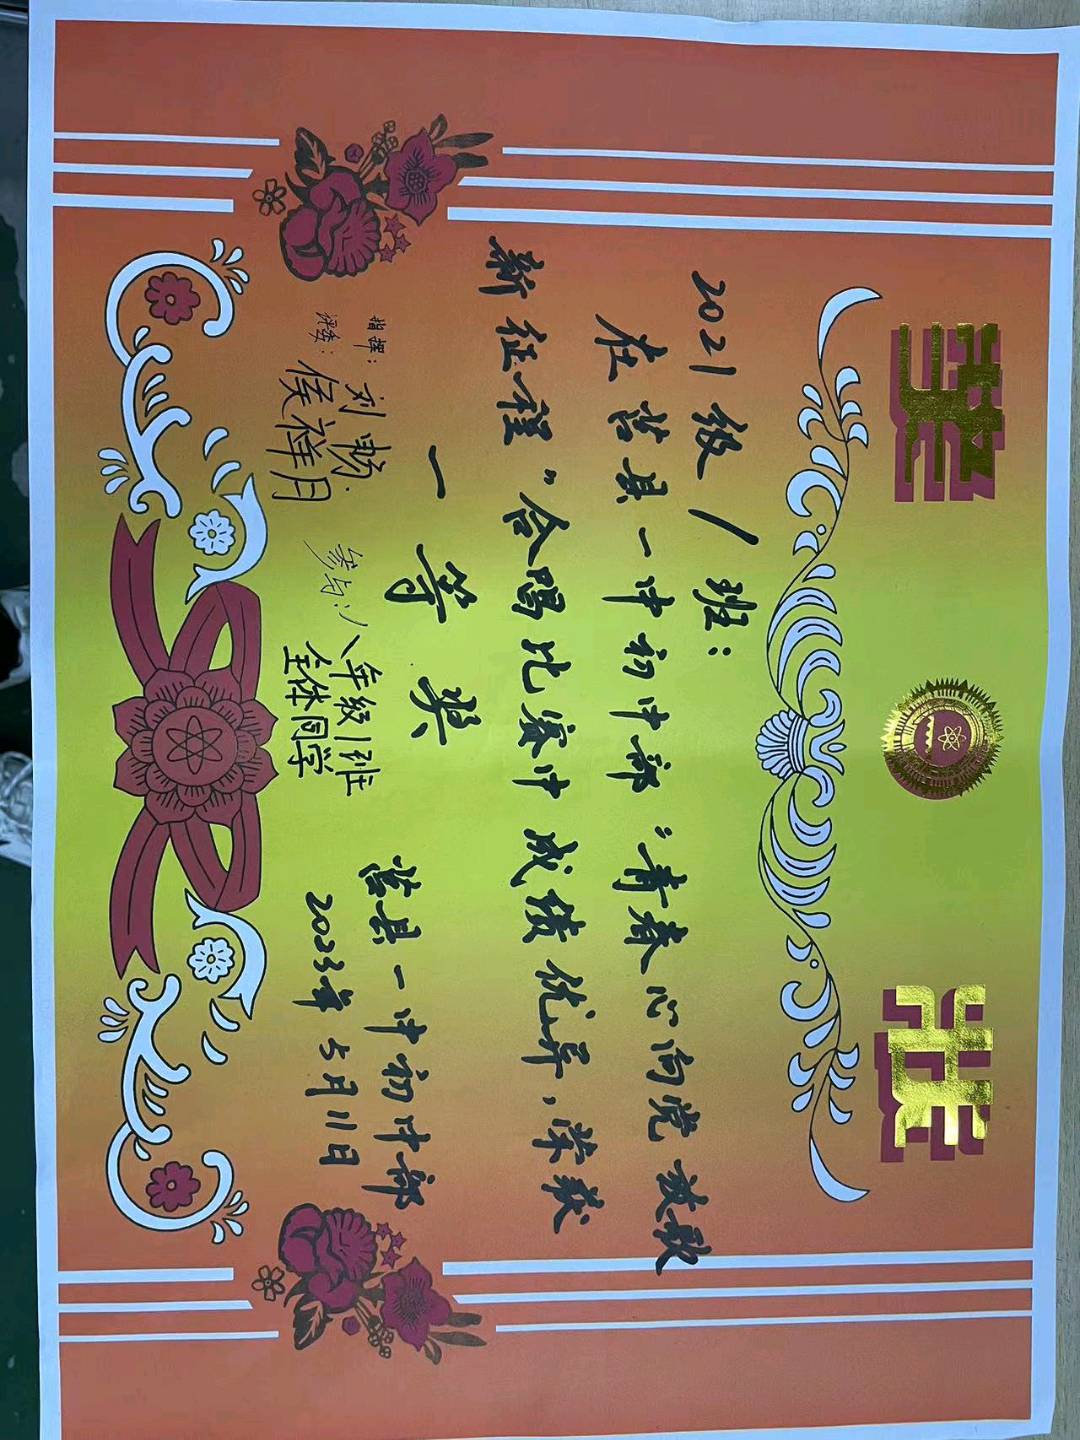 奖状
2021级1班：
在莒县一中初中部“青春心向党 放歌
新征程”合唱比赛中成绩优异，荣获
一等奖
指挥：刘畅
评委：侯祥月
参与：八年级1班
全体同学
莒县一中初中部
2023年5月11日